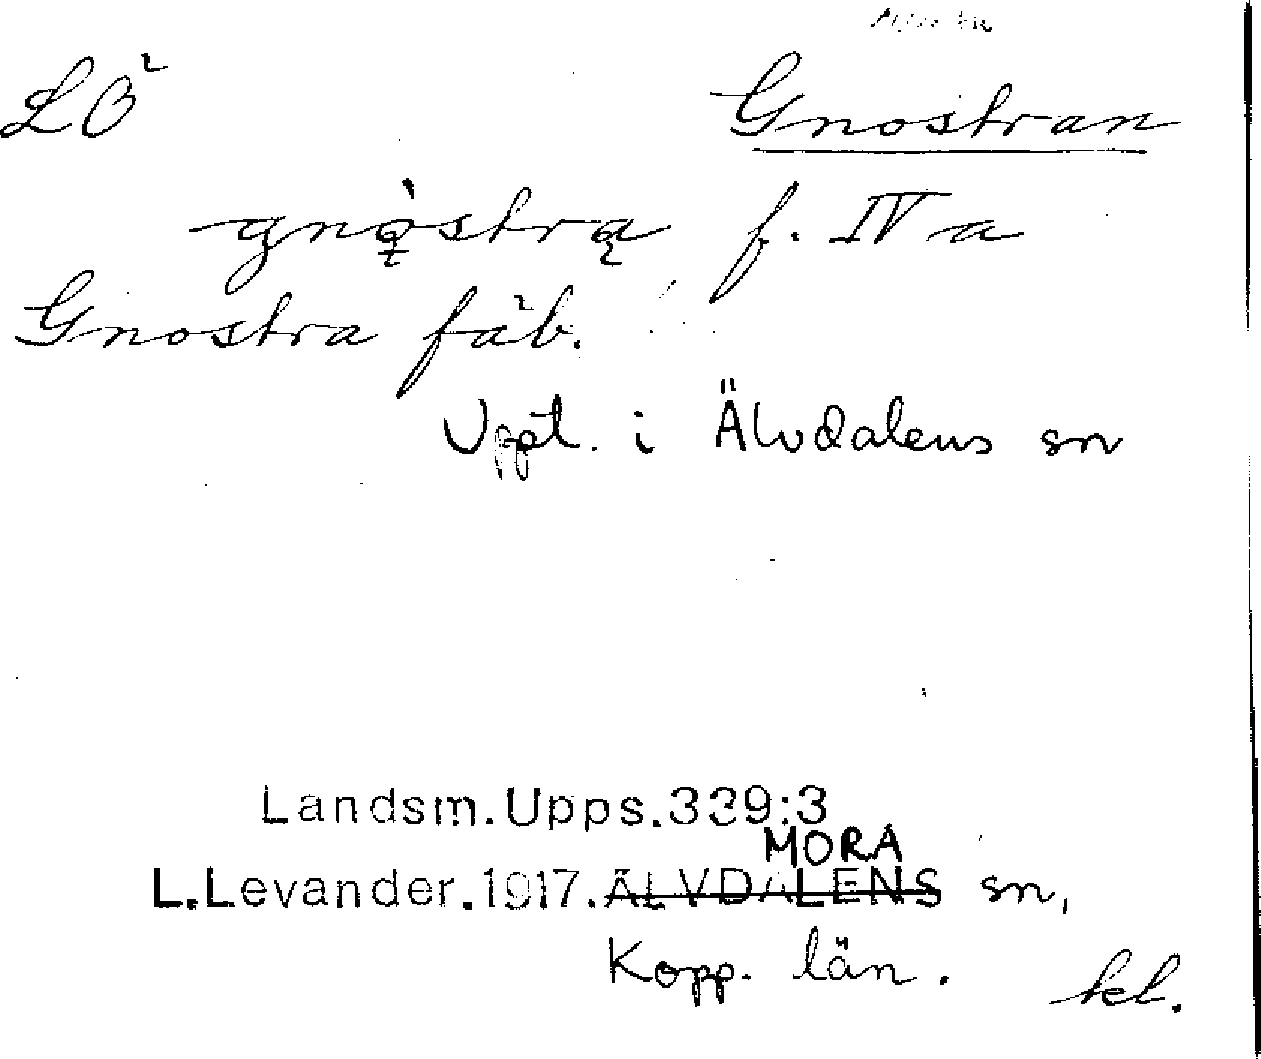 LÖ² Gnostran
gnò̱strą f. IV a
Gnostra fäb.
Uppt. i Älvdalens sn
Landsm.Upps.339:3
MORA
L.Levander.1917.ÄLVDALENS sn,
Kopp. län.
kl.